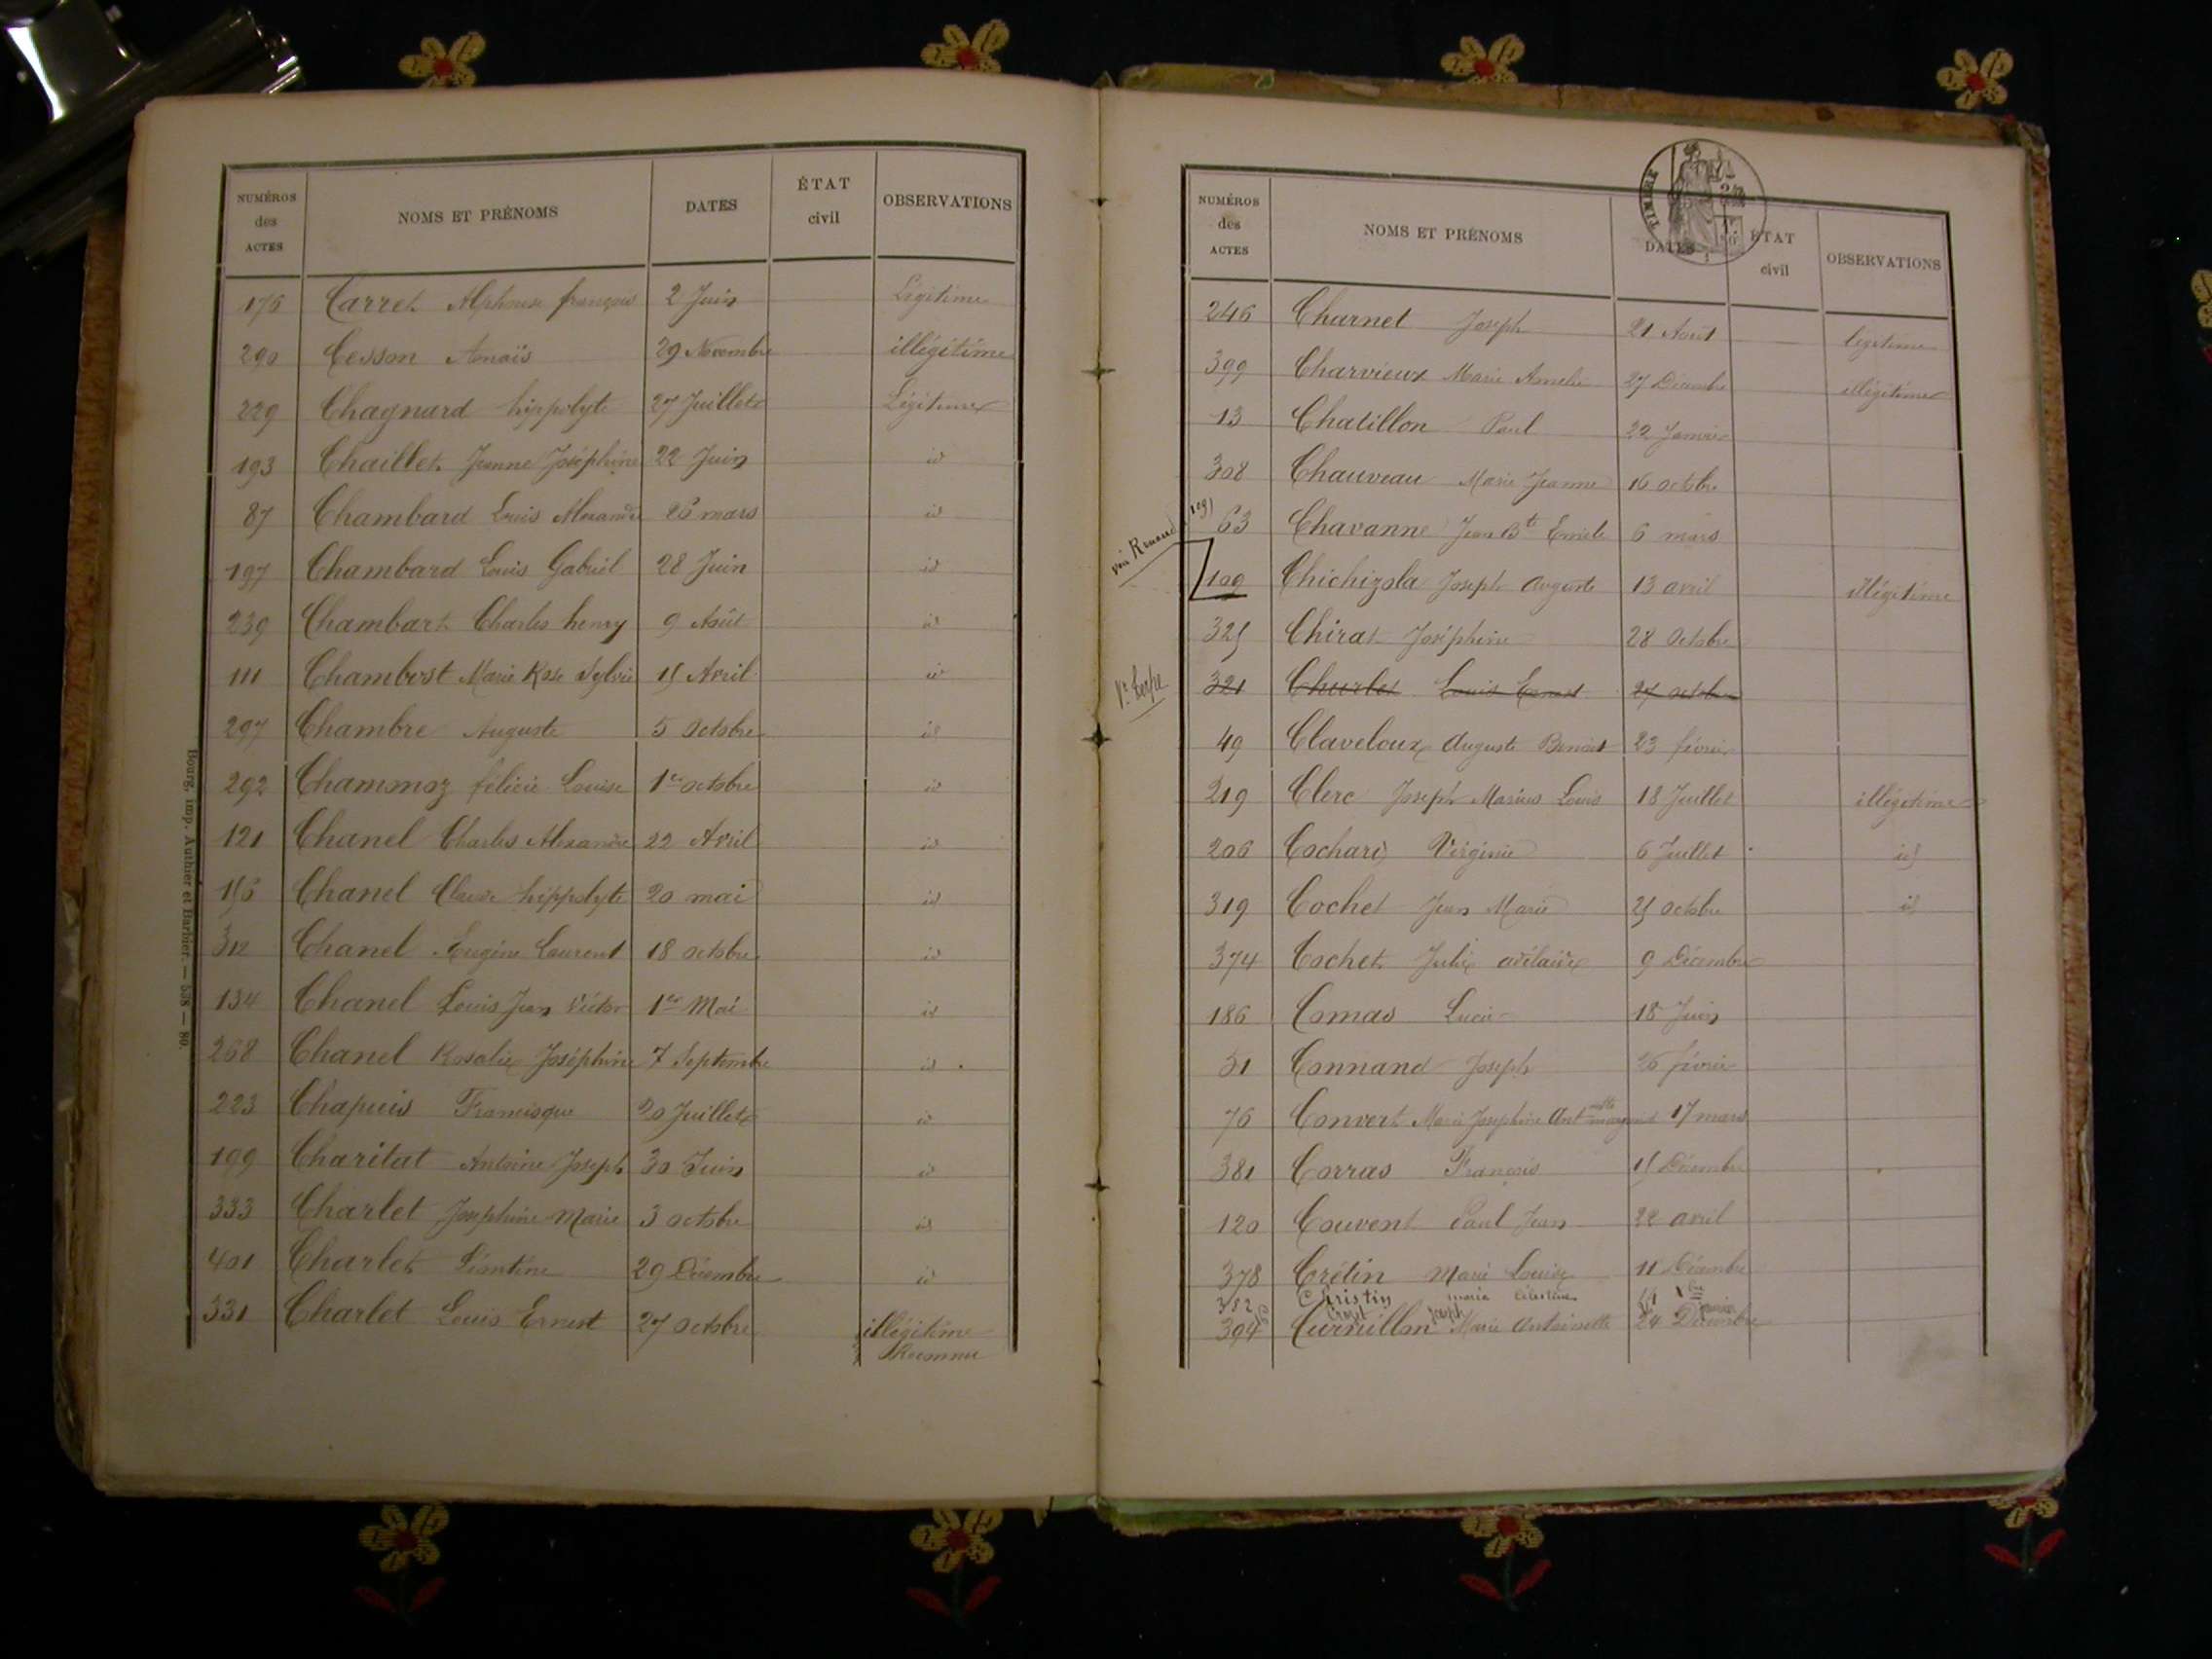 NUMÉROS des ACTES NOMS ET PRÉNOMS DATES ÉTAT civil OBSERVATIONS
176 Carret Alphonse françois 2 Juin Légitime
290 Cesson Anaïs 29 Novembre illégitime
229 Chagnard hippolyte 27 Juillet Légitime
193 Chaillet Jeanne Joséphine 22 Juin id
87 Chambard Louis Alexandre 26 mars id
197 Chambard Louis Gabriel 28 Juin id
239 Chambart Charles henry 9 Août id
111 Chambost Marie Rose Sylvie 15 Avril id
297 Chambre Auguste 5 Octobre id
292 Chammoz félicie Louise 1er octobre id
121 Chanel Charles Alexandre 22 Avril id
156 Chanel Claude hippolyte 20 mai id
312 Chanel Eugène Laurent 18 octobre id
134 Chanel Louis Jean Victor 1er Mai id
268 Chanel Rosalie Joséphine 7 Septembre id
223 Chapuis Francisque 20 Juillet id
199 Charitat Antoine Joseph 30 Juin id
333 Charlet Joséphine Marie 3 octobre id
401 Charlet Léontine 29 Décembre id
331 Charlet Louis Ernest 27 octobre illégitime
Reconnu
Bourg, imp. Authier et Barbier. — 538 — 80.
TIMBRE
NUMÉROS des ACTES NOMS ET PRÉNOMS DATES ÉTAT civil OBSERVATIONS
246 Charnet Joseph 21 Août légitime
399 Charvieux Marie Amélie 27 Décembre illégitime
13 Chatillon Paul 22 Janvier
308 Chauveau Marie Jeanne 16 octobre
voir Renaud 109
63 Chavanne Jean Bte Emile 6 mars
109 Chichizola Joseph Auguste 13 avril illégitime
325 Chirat Joséphine 28 Octobre
321 Churlet Louis Ernest 27 octobre
49 Claveloux Auguste Benoit 23 février
219 Clerc Joseph Marius Louis 18 Juillet illégitime
206 Cochard Virginie 6 Juillet id
319 Cochet Jean Marie 25 octobre id
374 Cochet Julie adélaïde 9 Décembre
186 Comas Lucie 18 Juin
51 Connand Joseph 26 février
76 Convert Marie Joséphine Ant 17 mars
381 Corras François 15 Décembre
120 Couvent Paul Jean 22 avril
378 Crétin Marie Louise 11 Décembre
352 Christin marie Célestine
Crozet Joseph janvier
394 Curvillon Marie Antoinette 24 Décembre